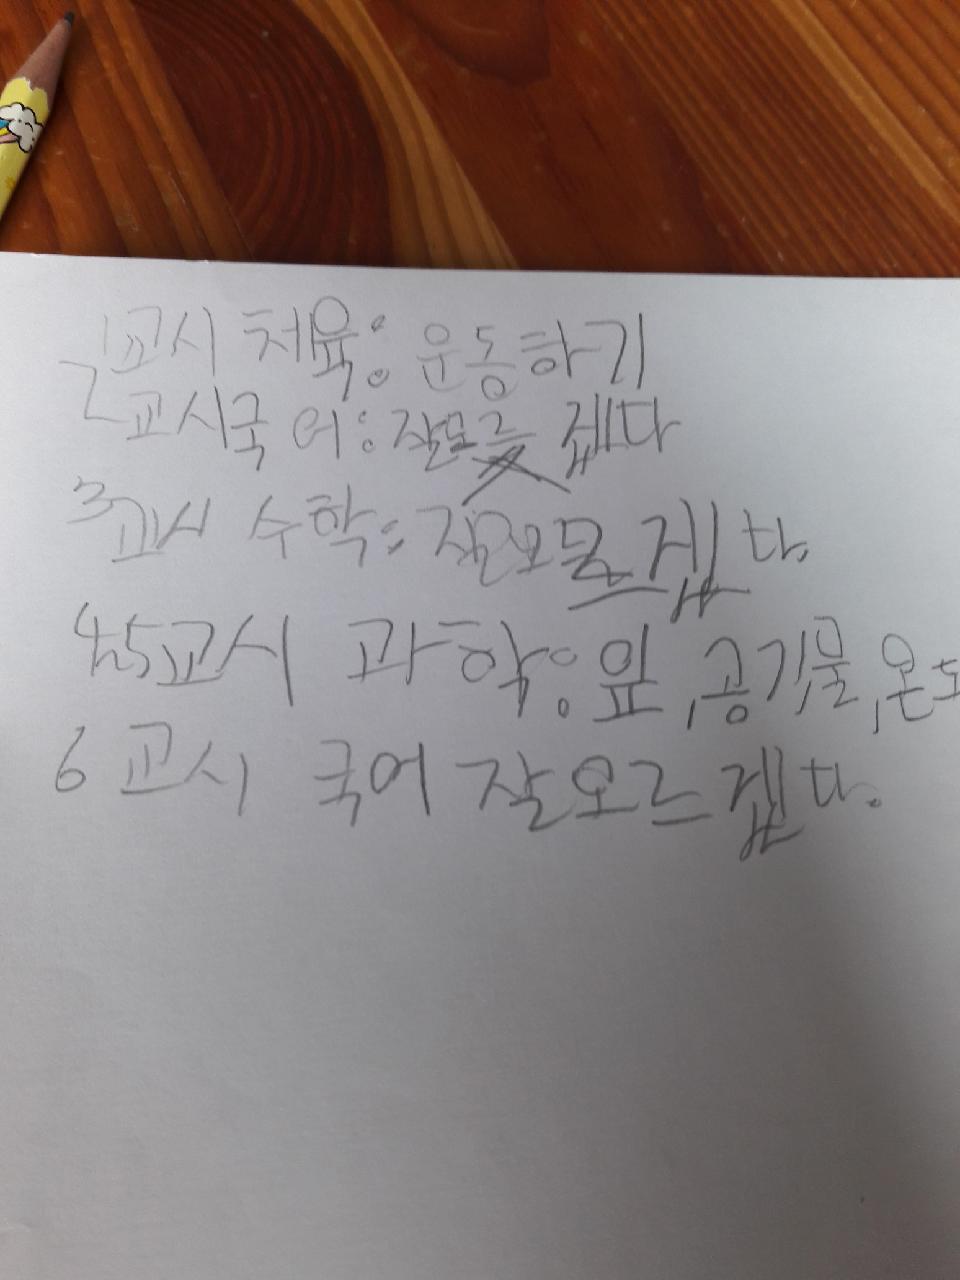 1교시 체육: 운동하기
2교시국어: 잘모르겠다
3교시 수학: 잘모르겠다.
4,5교시 과학: 잎,공기,물,온도
6교시 국어 잘모르겠다.